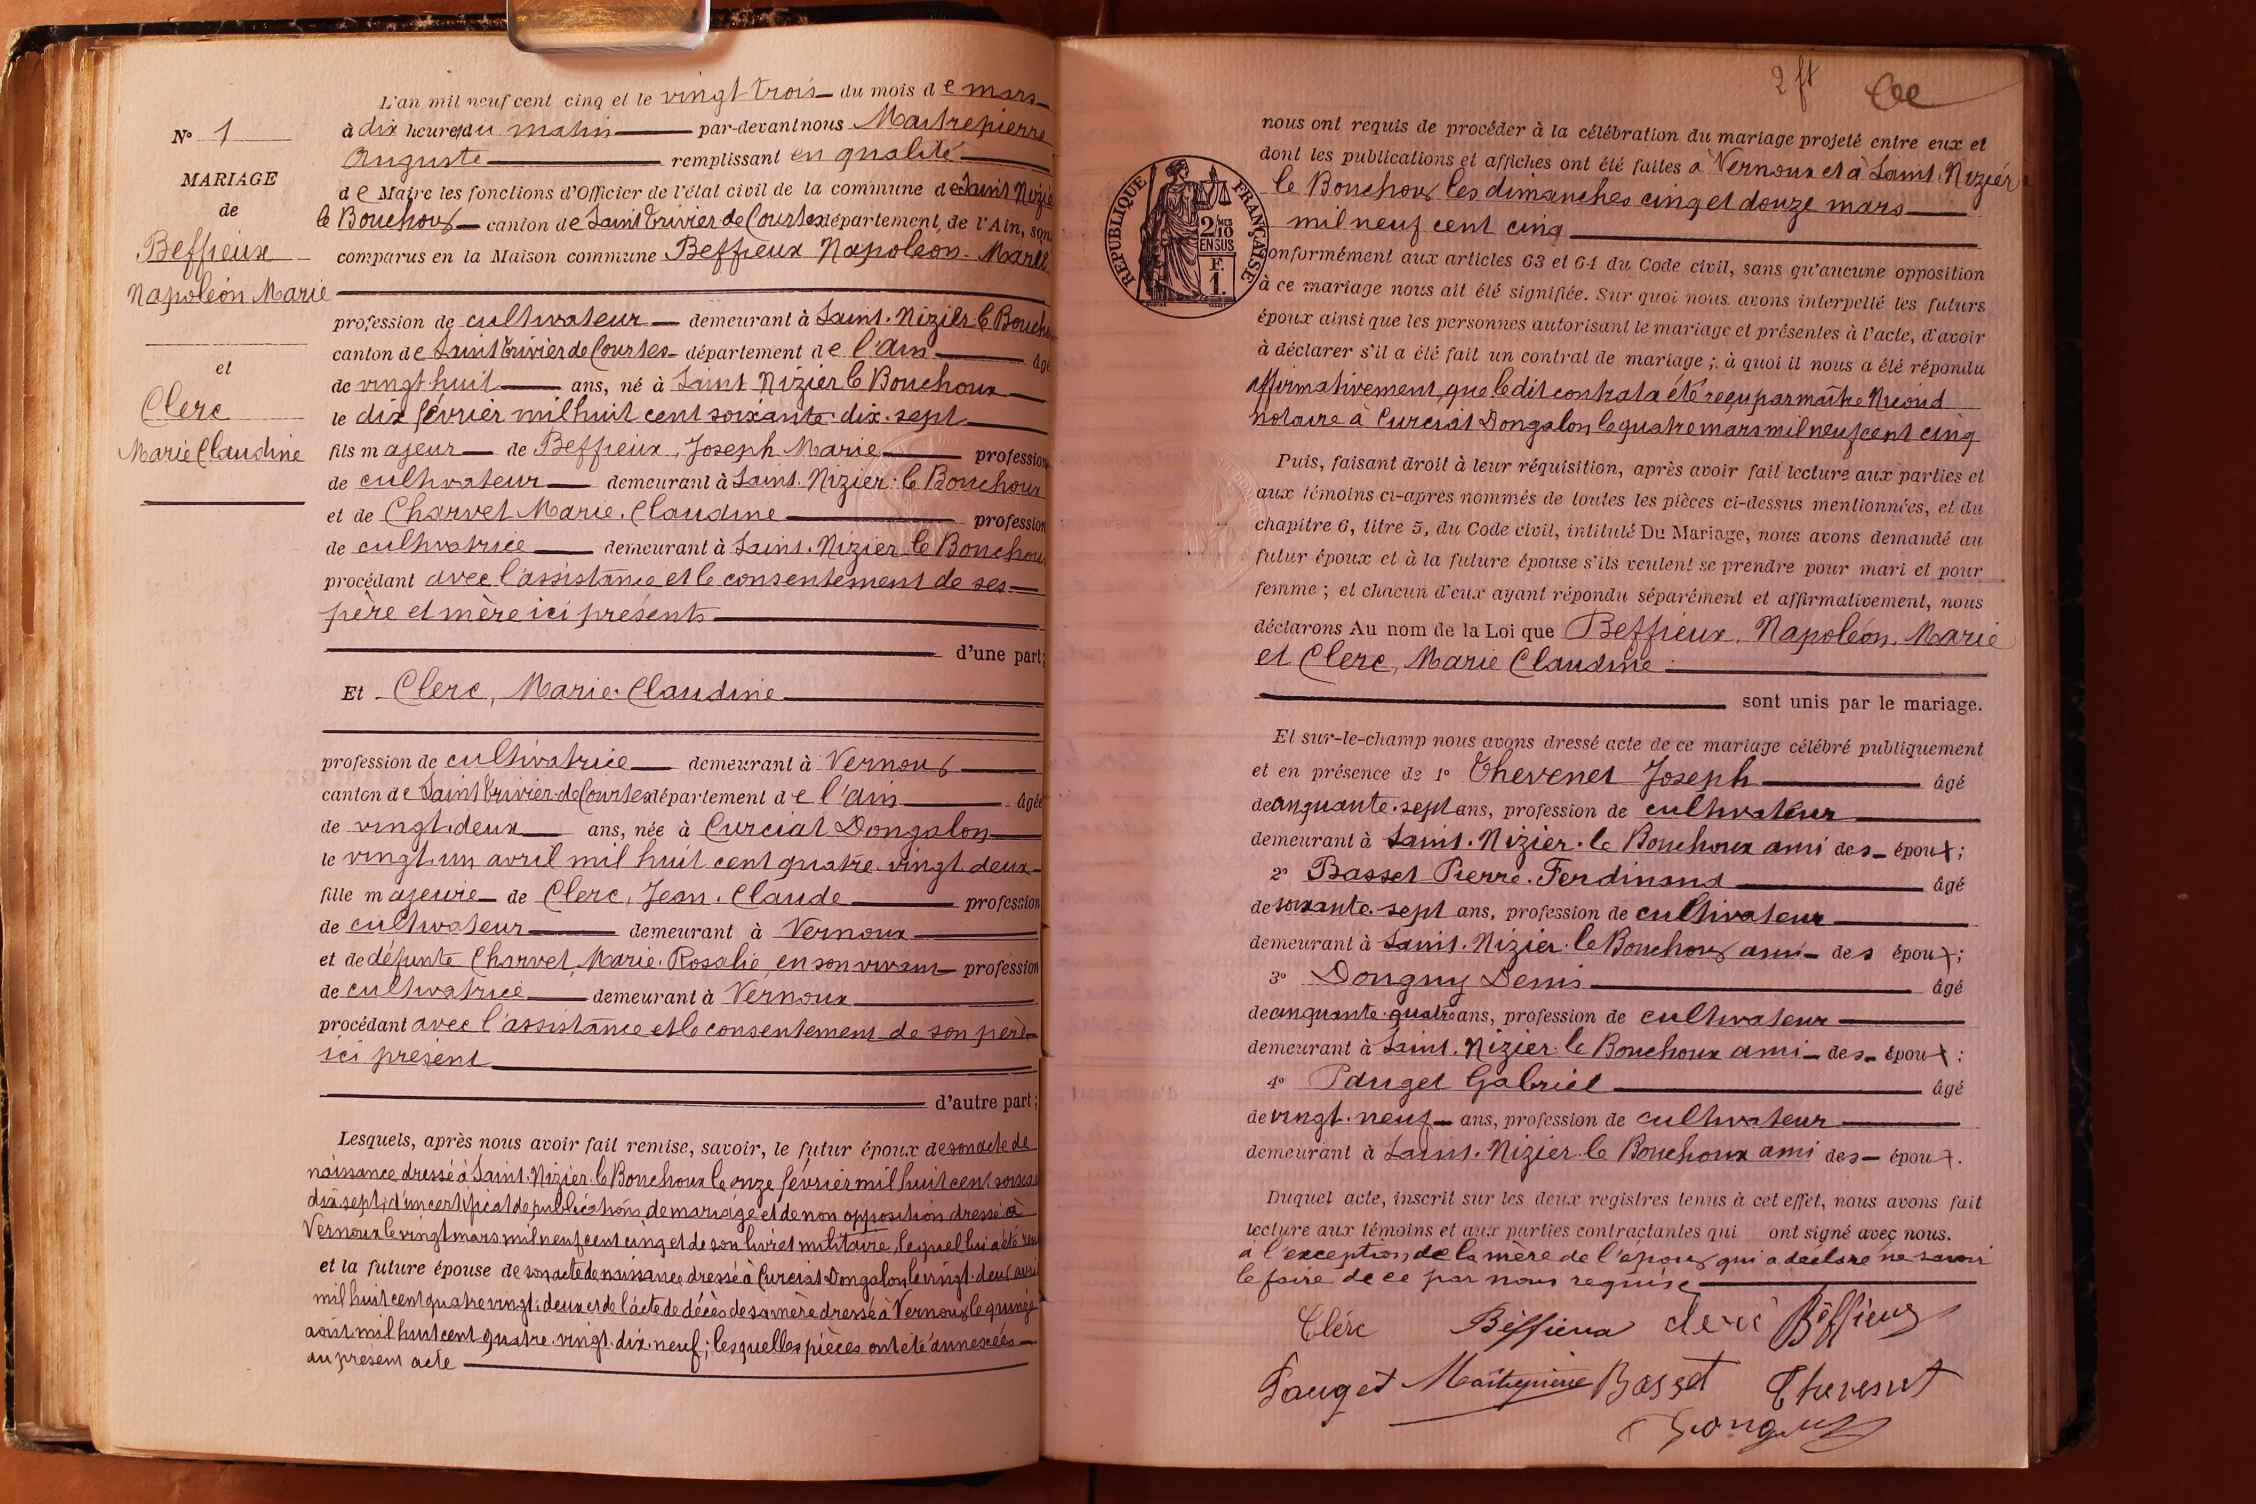 N° 1
MARIAGE
de
Beffieux
Napoléon Marie
et
Clerc
Marie Claudine
L'an mil neuf cent cinq et le vingt trois du mois de mars
à dix heures du matin par-devant nous Maitrepierre
Auguste remplissant en qualité
de Maire les fonctions d'Officier de l'état civil de la commune de Saint Nizier
le Bouchoux canton de Saint Trivier de Courtes département de l'Ain, son
comparus en la Maison commune Beffieux Napoléon. Marie
profession de cultivateur demeurant à Saint. Nizier le Bouchoux
canton de Saint Trivier de Courtes département de l'Ain âgé
de vingt huit ans, né à Saint Nizier le Bouchoux
le dix février mil huit cent soixante-dix-sept
fils majeur de Beffieux, Joseph Marie profession
de cultivateur demeurant à Saint. Nizier. le Bouchoux
et de Charvet Marie. Claudine profession
de cultivatrice demeurant à Saint. Nizier le Bouchoux
procédant avec l'assistance et le consentement de ses
père et mère ici présents
d'une part;
Et Clerc, Marie. Claudine
profession de cultivatrice demeurant à Vernoux
canton de Saint Trivier-de Courtes département de l'Ain âgée
de vingt-deux ans, née à Curciat Dongalon
le vingt-un avril mil huit cent quatre-vingt-deux
fille majeure de Clerc, Jean. Claude profession
de cultivateur demeurant à Vernoux
et de défunte Charvet, Marie. Rosalie, en son vivant profession
de cultivatrice demeurant à Vernoux
procédant avec l'assistance et le consentement de son père
ici présent
d'autre part;
Lesquels, après nous avoir fait remise, savoir, le futur époux de son acte de
naissance dressé à Saint. Nizier. le Bouchoux le onze février mil huit cent soixante
dix sept, d'un certificat de publications de mariage et de non opposition dressé à
Vernoux le vingt mars mil neuf cent cinq et de son livret militaire, lequel lui a été rendu
et la future épouse de son acte de naissance dressé à Curciat Dongalon le vingt-deux avril
mil huit cent quatre vingt-deux et de l'acte de décès de sa mère dressé à Vernoux le quinze
août mil huit cent quatre-vingt-dix-neuf; lesquelles pièces ont été annexées
au présent acte
2 ft
RÉPUBLIQUE FRANÇAISE
2/10 EN SUS
F. 1.
nous ont requis de procéder à la célébration du mariage projeté entre eux et
dont les publications et affiches ont été faites à Vernoux et à Saint. Nizier
le Bouchoux les dimanches cinq et douze mars
mil neuf cent cinq
conformément aux articles 63 et 64 du Code civil, sans qu'aucune opposition
à ce mariage nous ait été signifiée. Sur quoi nous avons interpellé les futurs
époux ainsi que les personnes autorisant le mariage et présentes à l'acte, d'avoir
à déclarer s'il a été fait un contrat de mariage; à quoi il nous a été répondu
affirmativement, que ledit contrat a été reçu par maître
notaire à Curciat Dongalon le quatre mars mil neuf cent cinq
Puis, faisant droit à leur réquisition, après avoir fait lecture aux parties et
aux témoins ci-après nommés de toutes les pièces ci-dessus mentionnées, et du
chapitre 6, titre 5, du Code civil, intitulé Du Mariage, nous avons demandé au
futur époux et à la future épouse s'ils veulent se prendre pour mari et pour
femme; et chacun d'eux ayant répondu séparément et affirmativement, nous
déclarons Au nom de la Loi que Beffieux, Napoléon. Marie
et Clerc, Marie Claudine
sont unis par le mariage.
Et sur-le-champ nous avons dressé acte de ce mariage célébré publiquement
et en présence de 1° Thevenet Joseph âgé
de cinquante-sept ans, profession de cultivateur
demeurant à Saint. Nizier. le Bouchoux ami des époux;
2° Basset Pierre. Ferdinand âgé
de soixante-sept ans, profession de cultivateur
demeurant à Saint. Nizier. le Bouchoux ami des époux;
3° Donguy Denis âgé
de cinquante-quatre ans, profession de cultivateur
demeurant à Saint. Nizier. le Bouchoux ami des époux;
4° Pauget Gabriel âgé
de vingt-neuf ans, profession de cultivateur
demeurant à Saint. Nizier. le Bouchoux ami des époux.
Duquel acte, inscrit sur les deux registres tenus à cet effet, nous avons fait
lecture aux témoins et aux parties contractantes qui ont signé avec nous.
à l'exception de la mère de l'époux qui a déclaré ne savoir
le faire de ce par nous requise
Clerc Beffieux Clerc Beffieux
Pauget Maitrepierre Basset Thevenet
Donguy